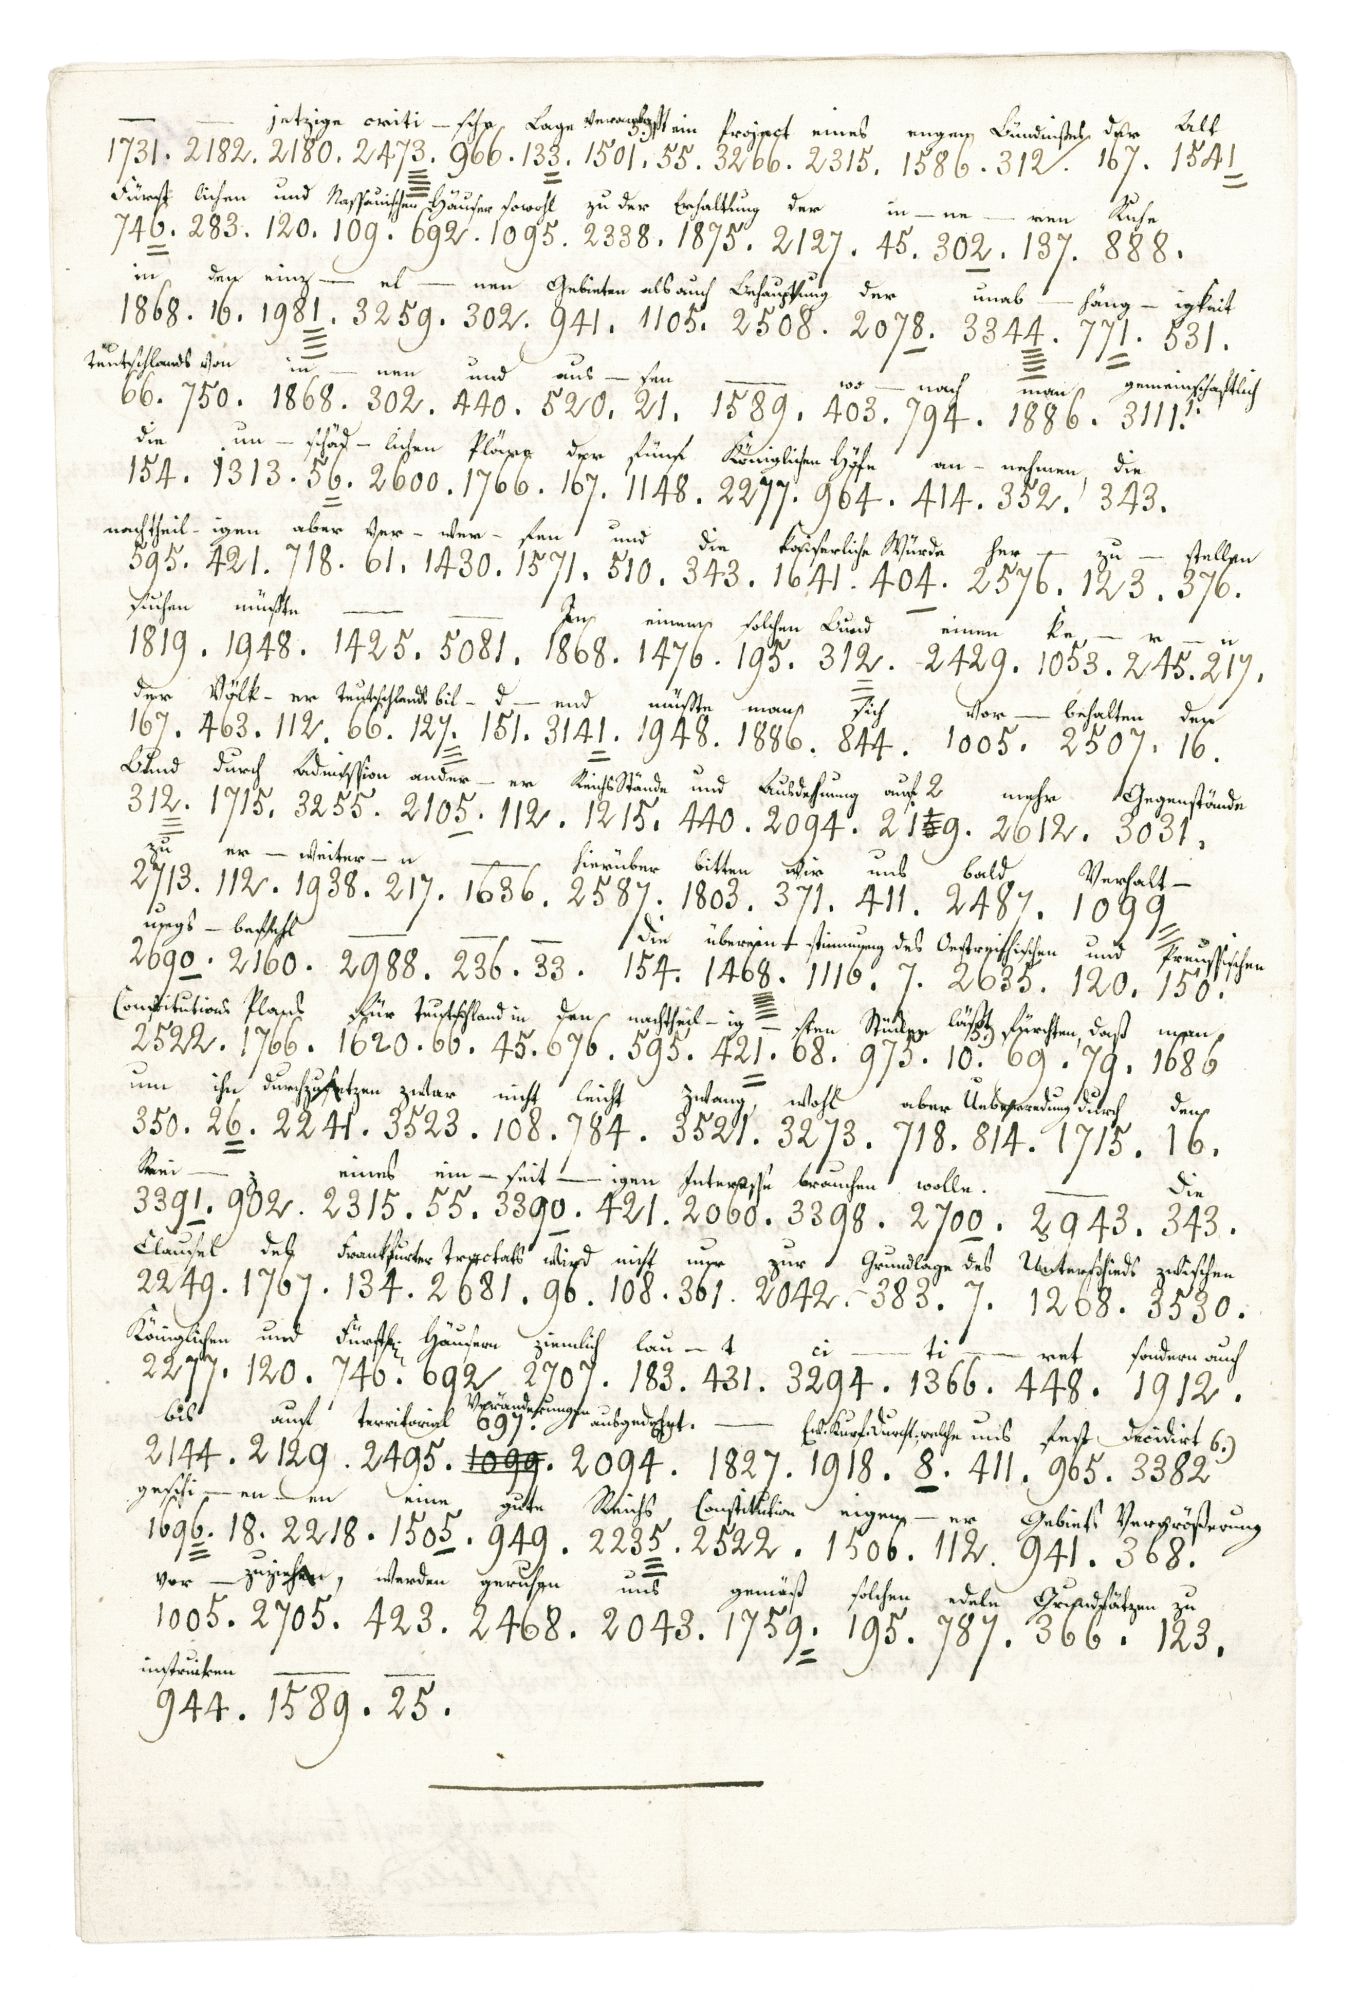 — — jetzige criti - sche Lage veranlasst ein Project eines engen Bündnisses der Alt
1731. 2182. 2180. 2473. 966. 133. 1501. 55. 3266. 2315. 1586. 312. 167. 1541
Fürst lichen und Nassauischen Häuser sowohl zu der Erhaltung der in - ne - ren Ruhe
746. 283. 120. 109. 692. 1095. 2338. 1875. 2127. 45. 302. 137. 888.
in den einz - el - nen Gebieten als auch Behauptung der unab - häng - igkeit
1868. 16. 1981. 3259. 302. 941. 1105. 2508. 2078. 3344. 771. 531.
Teutschlands von in - nen und aus - sen — wo - nach man gemeinschaftlich
66. 750. 1868. 302. 440. 520. 21. 1589. 403. 794. 1886. 3111.
die un - schäd - lichen Pläne der fünf Königlichen Höfe an - nehmen, die
154. 1313. 56. 2600. 1766. 167. 1148. 2277. 964. 414. 352. 343.
nachtheil - igen aber ver - wer - fen und die Kaiserliche Würde her - zu - stellen
595. 421. 718. 61. 1430. 1571. 510. 343. 1641. 404. 2576. 123. 376.
suchen müsste — — In einem solchen Bund einen ke - r - n
1819. 1948. 1425. 5081. 1868. 1476. 195. 312. 2429. 1053. 245. 217.
der Völk - er Teutschlands bil - d - end müsste man sich vor - behalten den
167. 463. 112. 66. 127. 151. 3141. 1948. 1886. 844. 1005. 2507. 16.
Bund durch Admission ander - er Reichs Stände und Ausdehnung auf 2 mehr Gegenstände
312. 1715. 3255. 2105. 112. 1215. 440. 2094. 2129. 2612. 3031.
zu er - weiter - n — hierüber bitten wir uns bald Verhalt -
2713. 112. 1938. 217. 1636. 2587. 1803. 371. 411. 2487. 1099
ungs - befehl — — — die überein - stimmung des Oestreichischen und Preussischen
2690. 2160. 2988. 236. 33. 154. 1468. 1116. 7. 2635. 120. 150.
Constitutions Plans für Teutschland in den nachtheil - ig - sten Stücken lässt 5.) fürchten, daß man
2522. 1766. 1620. 66. 45. 676. 595. 421. 68. 975. 10. 69. 79. 1686
um ihn durchzusetzen zwar nicht leicht Zwang, wohl aber Ueberredung durch den
350. 26. 2241. 3523. 108. 784. 3521. 3273. 718. 814. 1715. 16.
Rei - z eines ein - seit - igen Interesse brauchen wolle. — die
3391. 902. 2315. 55. 3390. 421. 2060. 3398. 2700. 2943. 343.
Clausel des Frankfurter Tractats wird nicht nur zur Grundlage des Unterschieds zwischen
2249. 1767. 134. 2681. 96. 108. 361. 2042. 383. 7. 1268. 3530.
Königlichen und Fürstl: Häusern ziemlich lau - t ci - ti - ret sondern auch
2277. 120. 746. 692 2707. 183. 431. 3294. 1366. 448. 1912.
bis auf territorial Veränderungen ausgedehnt. — Ew. Kurf. Durchl. welche uns fest decidirt 6.)
2144. 2129. 2495. 697. 1099. 2094. 1827. 1918. 8. 411. 965. 3382
geschi - en - en eine gute Reichs Constitution eigen - er Gebiets Vergrößerung
1696. 18. 2218. 1505. 949. 2235. 2522. 1506. 112. 941. 368.
vor - zuziehen, werden geruhen uns gemäß solchen edeln Grundsätzen zu
1005. 2705. 423. 2468. 2043. 1759. 195. 787. 366. 123.
— —
944. 1589. 25.